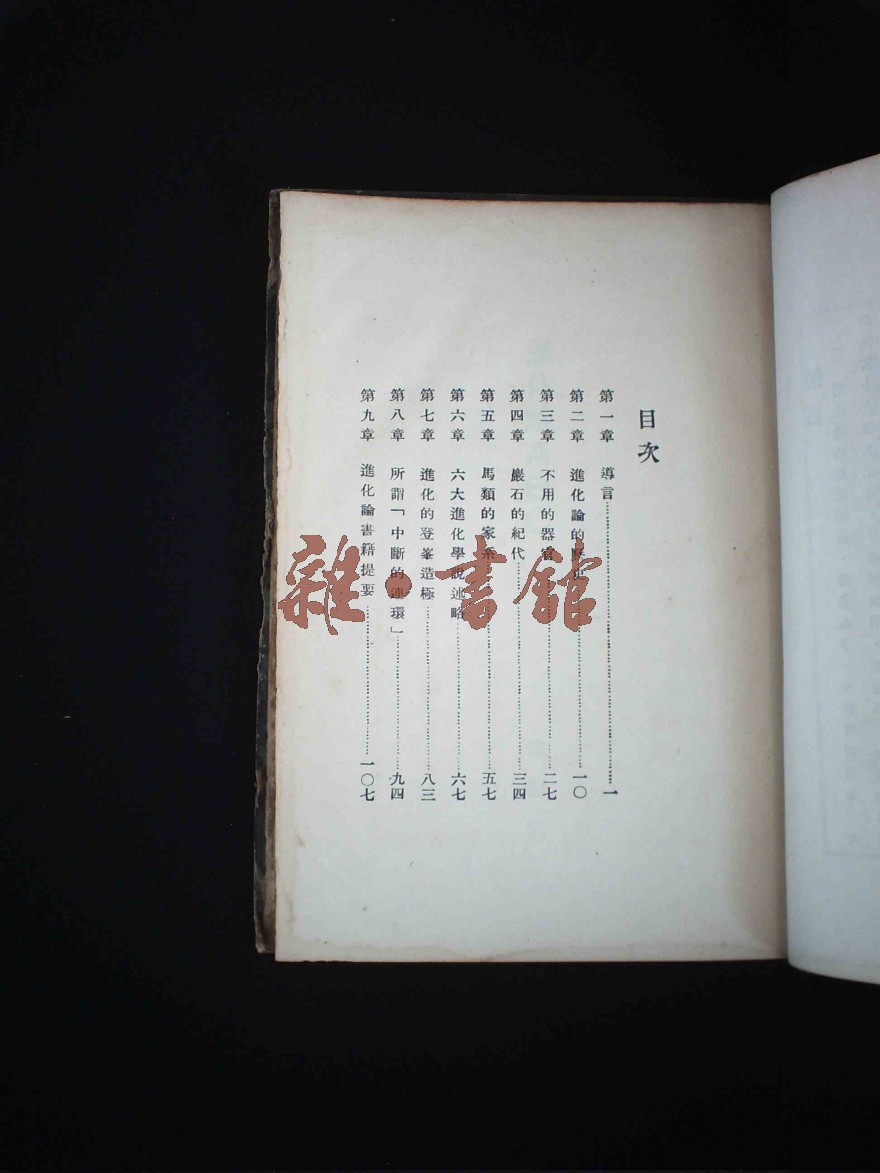 目次
第一章 導言……一
第二章 進化論的歷史……一〇
第三章 不用的器官……二七
第四章 巖石的紀代……三四
第五章 馬類的家系……五七
第六章 六大進化學說述略……六七
第七章 進化的登峯造極……八三
第八章 所謂「中斷的連環」……九四
第九章 進化論書籍提要……一〇七
雜·書館